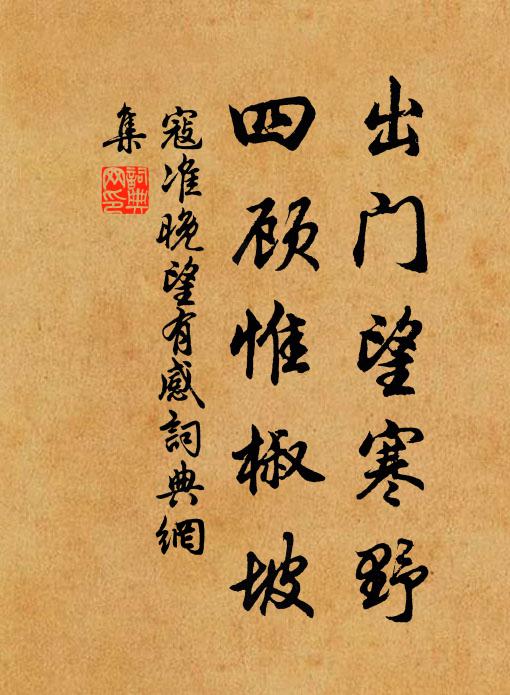 出门望寒野
四顾惟椒坡
寇准晚望有感词典網
集
詞典
网印